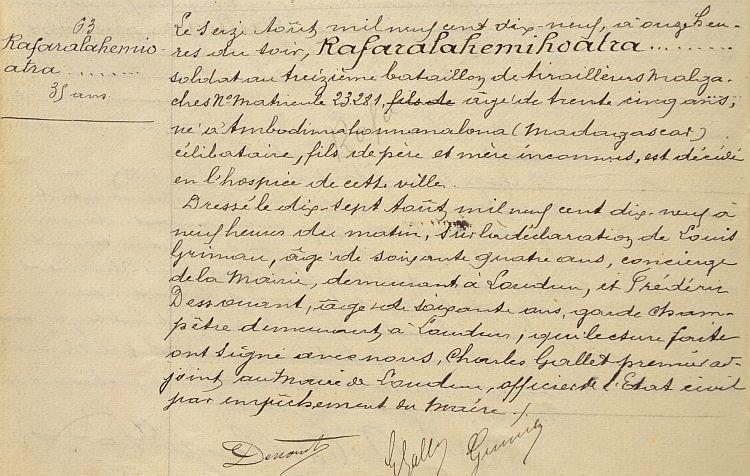 63
Rafaralahemiho-
atra........
35 ans
Le seize Août mil neuf cent dix-neuf, à onze heu-
res du soir, Rafaralahemihoatra.........
soldat au treizième bataillon de tirailleurs Malga-
ches N° Matricule 23281, fils de âgé de trente cinq ans,
né à Ambodimahonmanalona (Madagascar)
célibataire, fils de père et mère inconnus, est décédé
en l'hospice de cette ville.
Dressé le dix-sept Août mil neuf cent dix-neuf à
neuf heures du matin, sur la déclaration de Louis
Grimau, âgé de soixante quatre ans, concierge
de la Mairie, demeurant à Loudun, et Frédéric
Dessouant, âgé de soixante ans, garde cham-
pêtre demeurant à Loudun, qui lecture faite
ont signé avec nous, Charles Gallet premier ad-
joint au Maire de Loudun, officier de l'Etat civil
par empêchement du Maire.